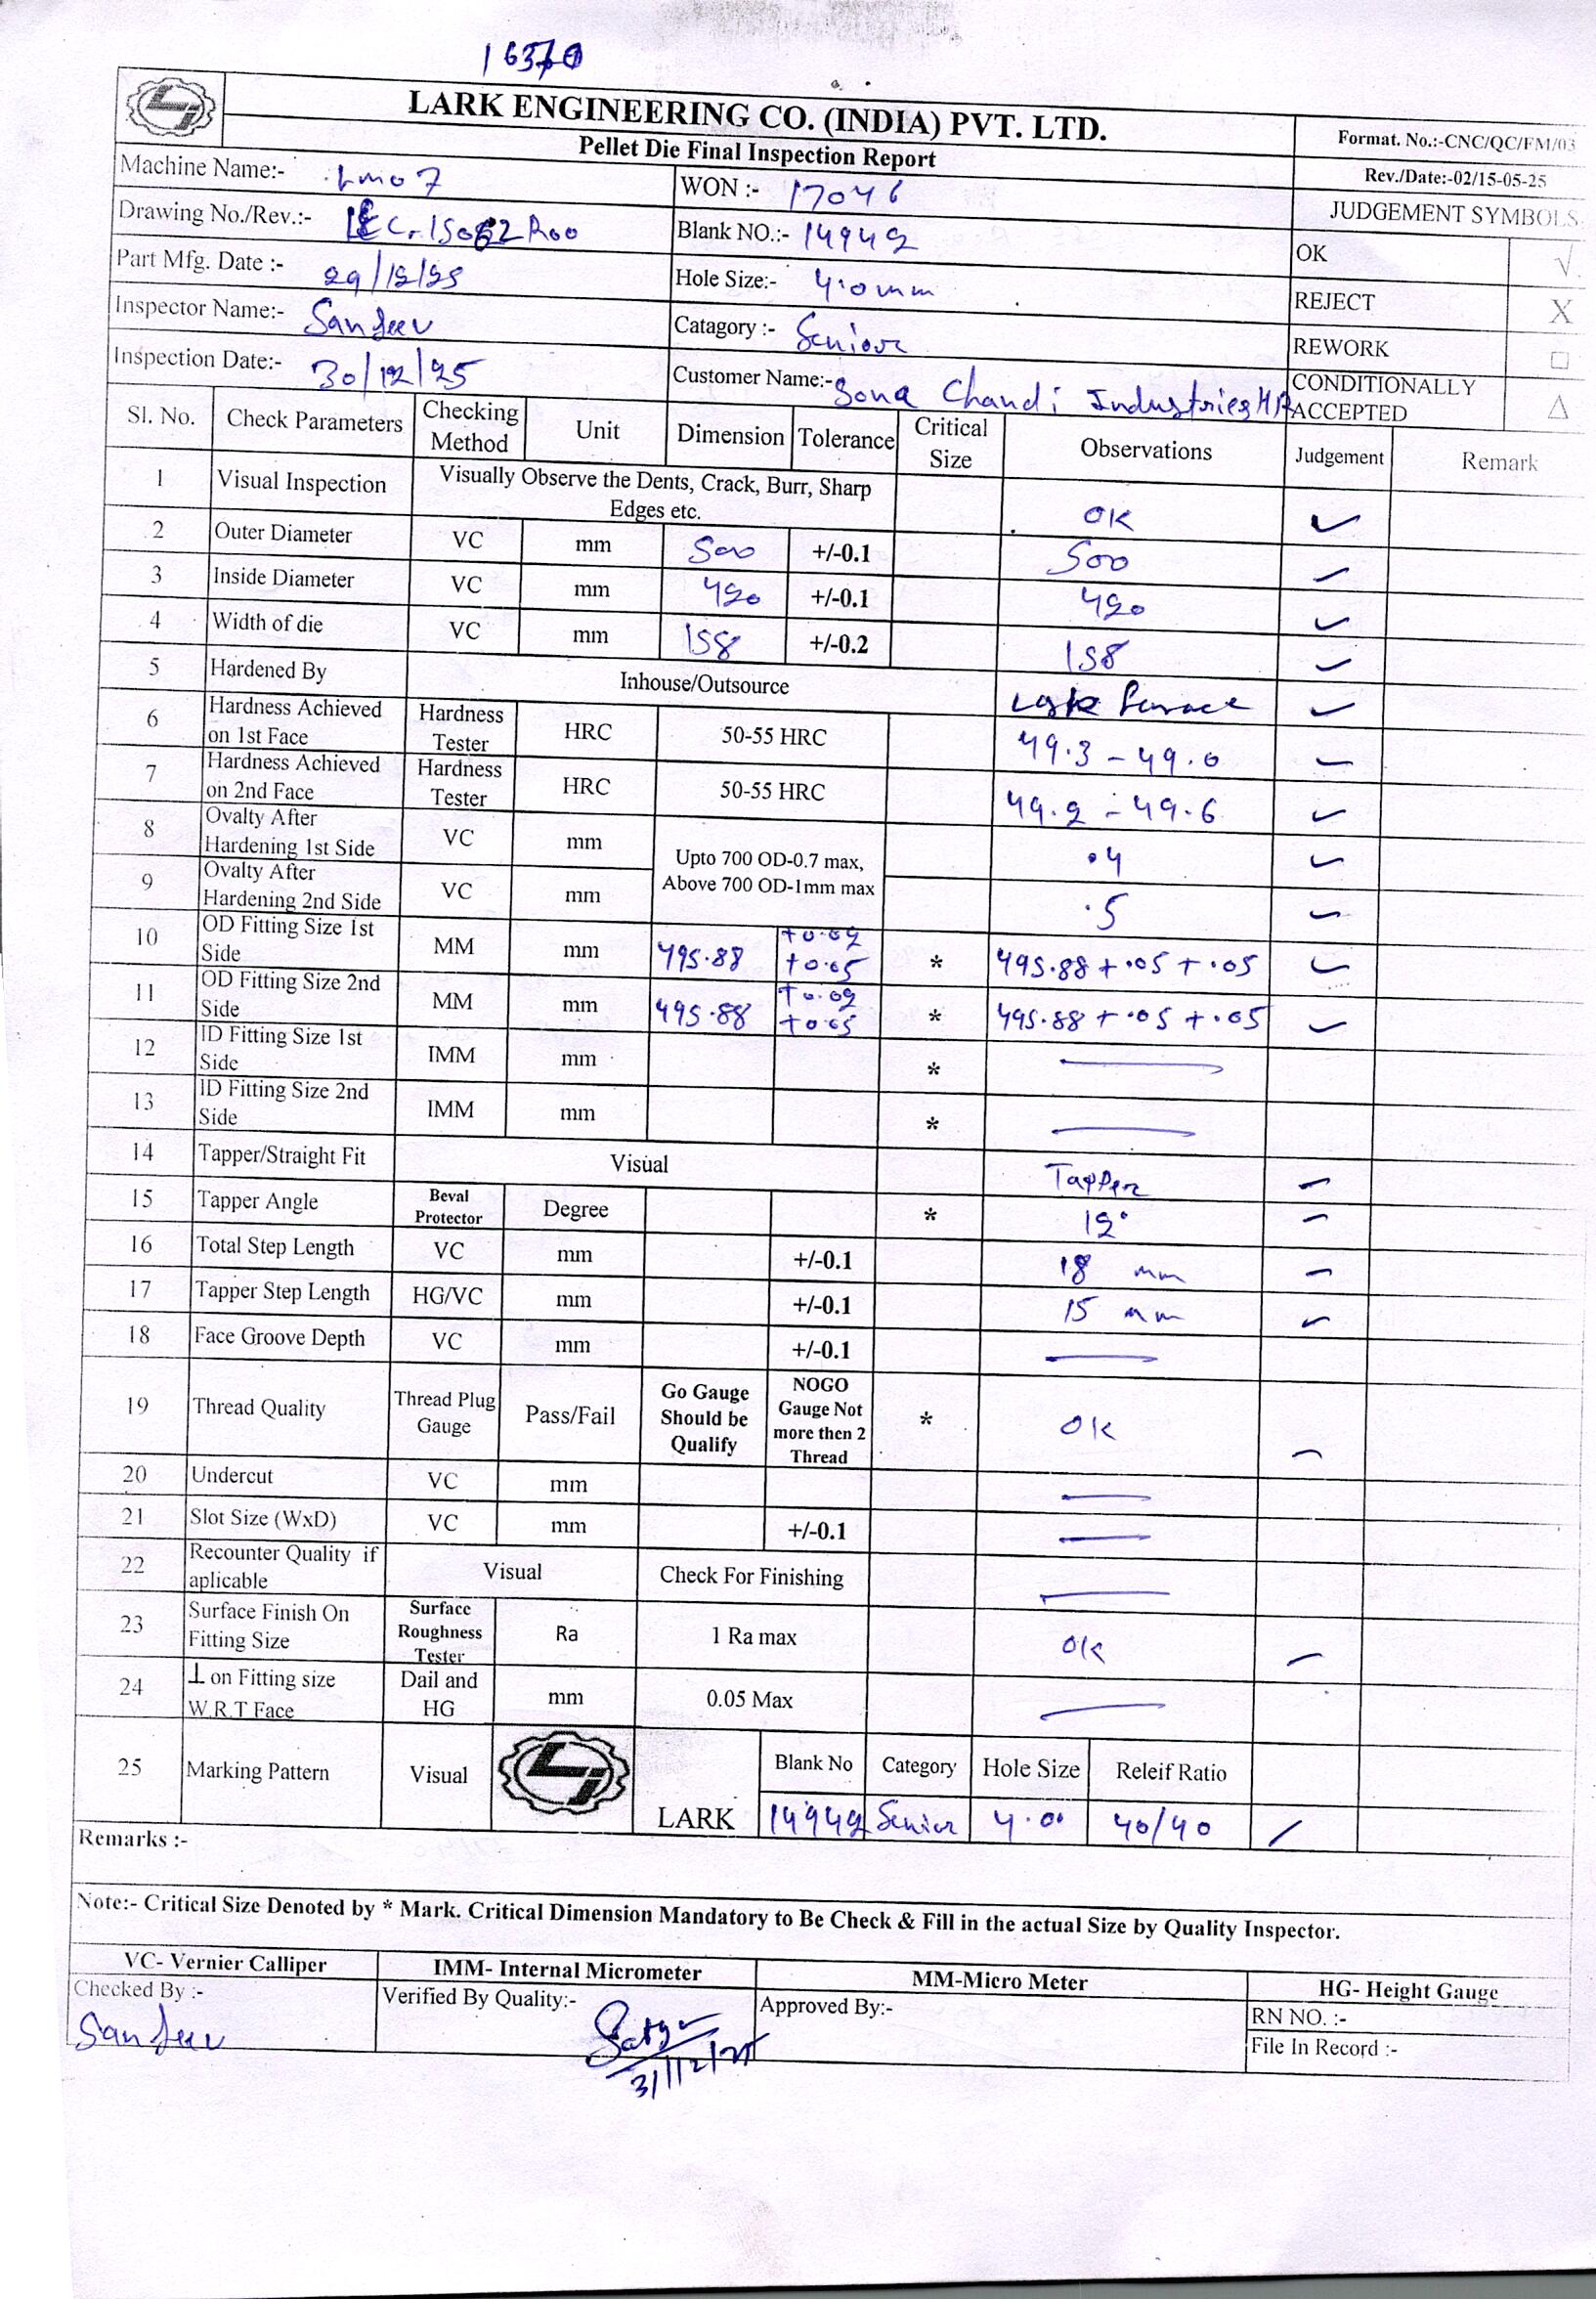 16370
LARK ENGINEERING CO. (INDIA) PVT. LTD.
Pellet Die Final Inspection Report
Format. No.:-CNC/QC/FM/03
Rev./Date:-02/15-05-25
JUDGEMENT SYMBOLS
Machine Name:- Lmo7 WON :- 17046
Drawing No./Rev.:- R00 Blank NO.:- 14942
OK √
Part Mfg. Date :- 29/12/25 Hole Size:- 4.0mm
REJECT X
Inspector Name:- Sanjeev Catagory :- Seniour
REWORK □
Inspection Date:- 30/12/25 Customer Name:- Sona Chandi Industries HR
CONDITIONALLY ACCEPTED △
Sl. No. Check Parameters Checking Method Unit Dimension Tolerance Critical Size Observations Judgement Remark
1 Visual Inspection Visually Observe the Dents, Crack, Burr, Sharp Edges etc. OK ✓
2 Outer Diameter VC mm 500 +/-0.1 500 ✓
3 Inside Diameter VC mm 420 +/-0.1 420 ✓
4 Width of die VC mm 158 +/-0.2 158 ✓
5 Hardened By Inhouse/Outsource Lark furnace ✓
6 Hardness Achieved on 1st Face Hardness Tester HRC 50-55 HRC 49.3 - 49.0 ✓
7 Hardness Achieved on 2nd Face Hardness Tester HRC 50-55 HRC 49.2 - 49.6 ✓
8 Ovalty After Hardening 1st Side VC mm Upto 700 OD-0.7 max, Above 700 OD-1mm max .4 ✓
9 Ovalty After Hardening 2nd Side VC mm .5 ✓
10 OD Fitting Size 1st Side MM mm 495.88 +0.05 * 495.88 + .05 + .05 ✓
11 OD Fitting Size 2nd Side MM mm 495.88 +0.05 * 495.88 + .05 + .05 ✓
12 ID Fitting Size 1st Side IMM mm *
13 ID Fitting Size 2nd Side IMM mm *
14 Tapper/Straight Fit Visual Tapper ✓
15 Tapper Angle Beval Protector Degree * 12° ✓
16 Total Step Length VC mm +/-0.1 18 mm ✓
17 Tapper Step Length HG/VC mm +/-0.1 15 mm ✓
18 Face Groove Depth VC mm +/-0.1
19 Thread Quality Thread Plug Gauge Pass/Fail Go Gauge Should be Qualify NOGO Gauge Not more then 2 Thread * OK ✓
20 Undercut VC mm
21 Slot Size (WxD) VC mm +/-0.1
22 Recounter Quality if aplicable Visual Check For Finishing
23 Surface Finish On Fitting Size Surface Roughness Tester Ra 1 Ra max OK ✓
24 ⊥ on Fitting size W.R.T Face Dail and HG mm 0.05 Max
25 Marking Pattern Visual LARK Blank No Category Hole Size Releif Ratio
14942 Senior 4.00 40/40
Remarks :-
Note:- Critical Size Denoted by * Mark. Critical Dimension Mandatory to Be Check & Fill in the actual Size by Quality Inspector.
VC- Vernier Calliper IMM- Internal Micrometer MM-Micro Meter HG- Height Gauge
Checked By :- Verified By Quality:- Approved By:- RN NO. :-
Sanjeev 31/12/25 File In Record :-